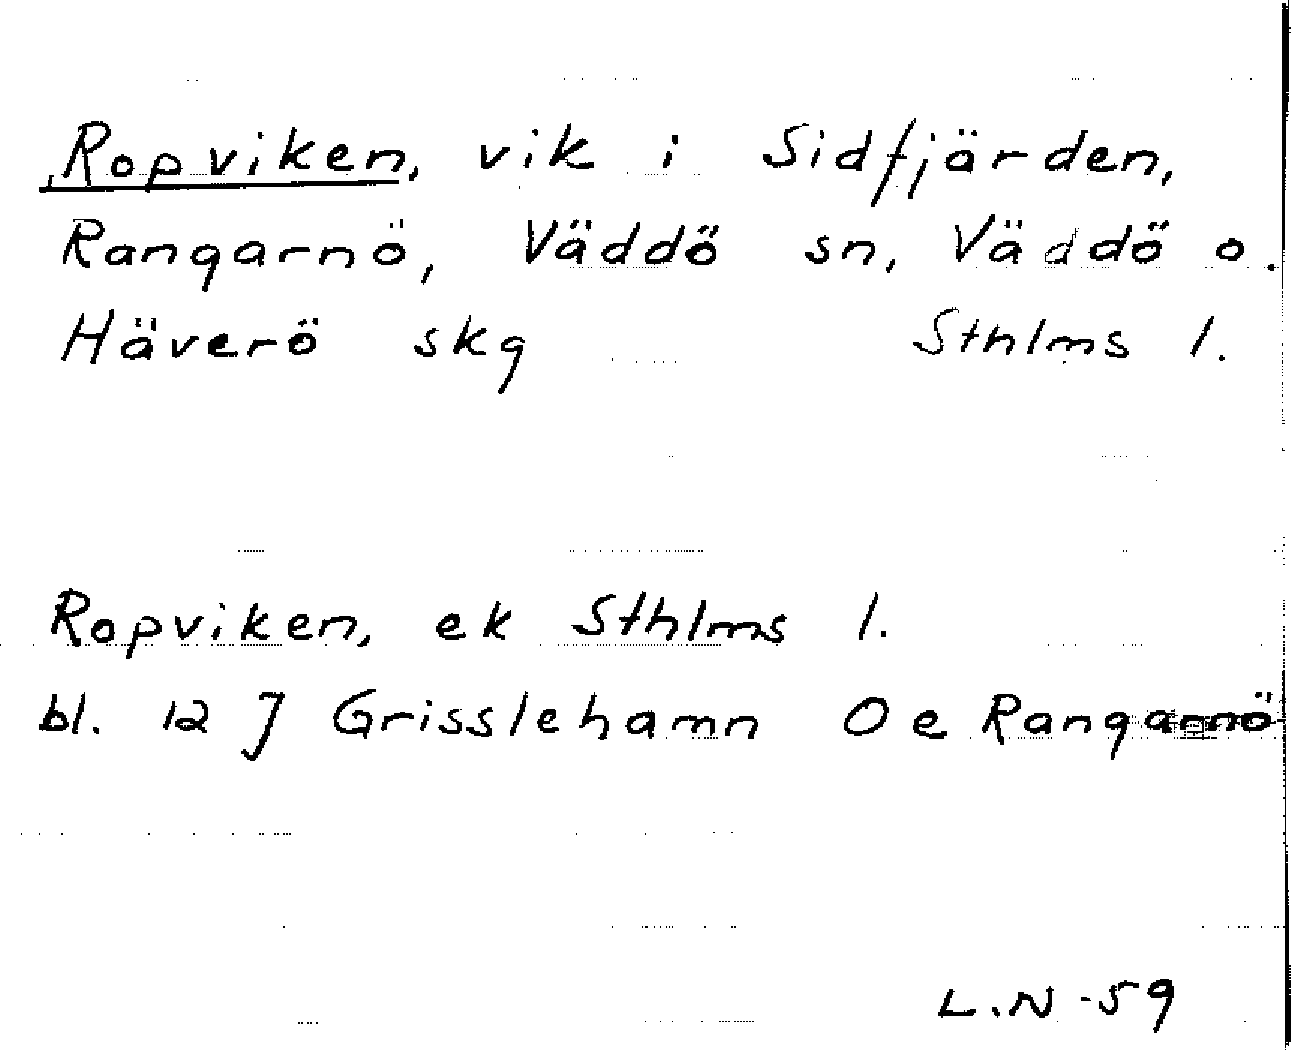 Ropviken, vik i Sidfjärden,
Rangarnö, Väddö sn, Väddö o.
Häverö skg Sthlms l.
Ropviken, ek Sthlms l.
bl. 12 J Grisslehamn O e Rangarnö
L.N -59